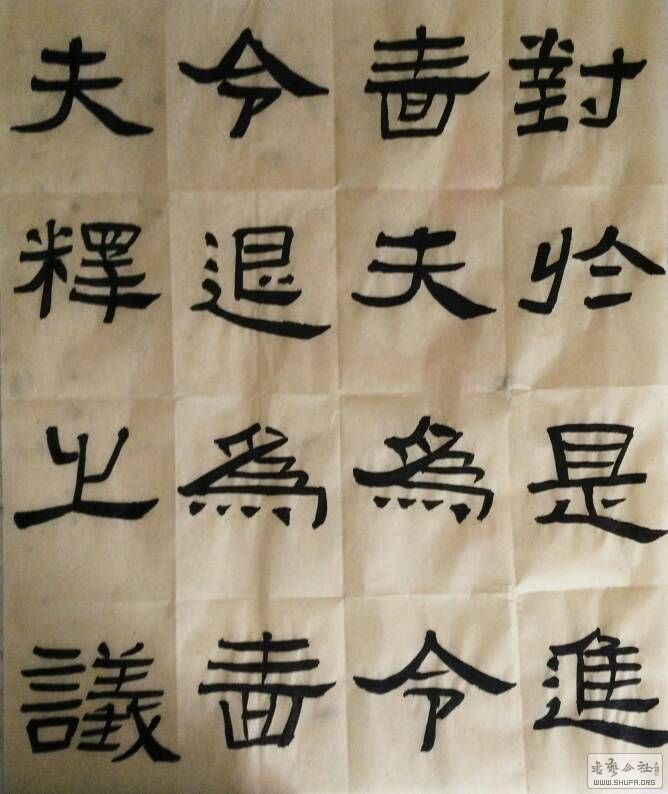 對於是進
嗇夫為令
令退為嗇
夫釋之議
書藝公社
WWW.SHUFA.ORG